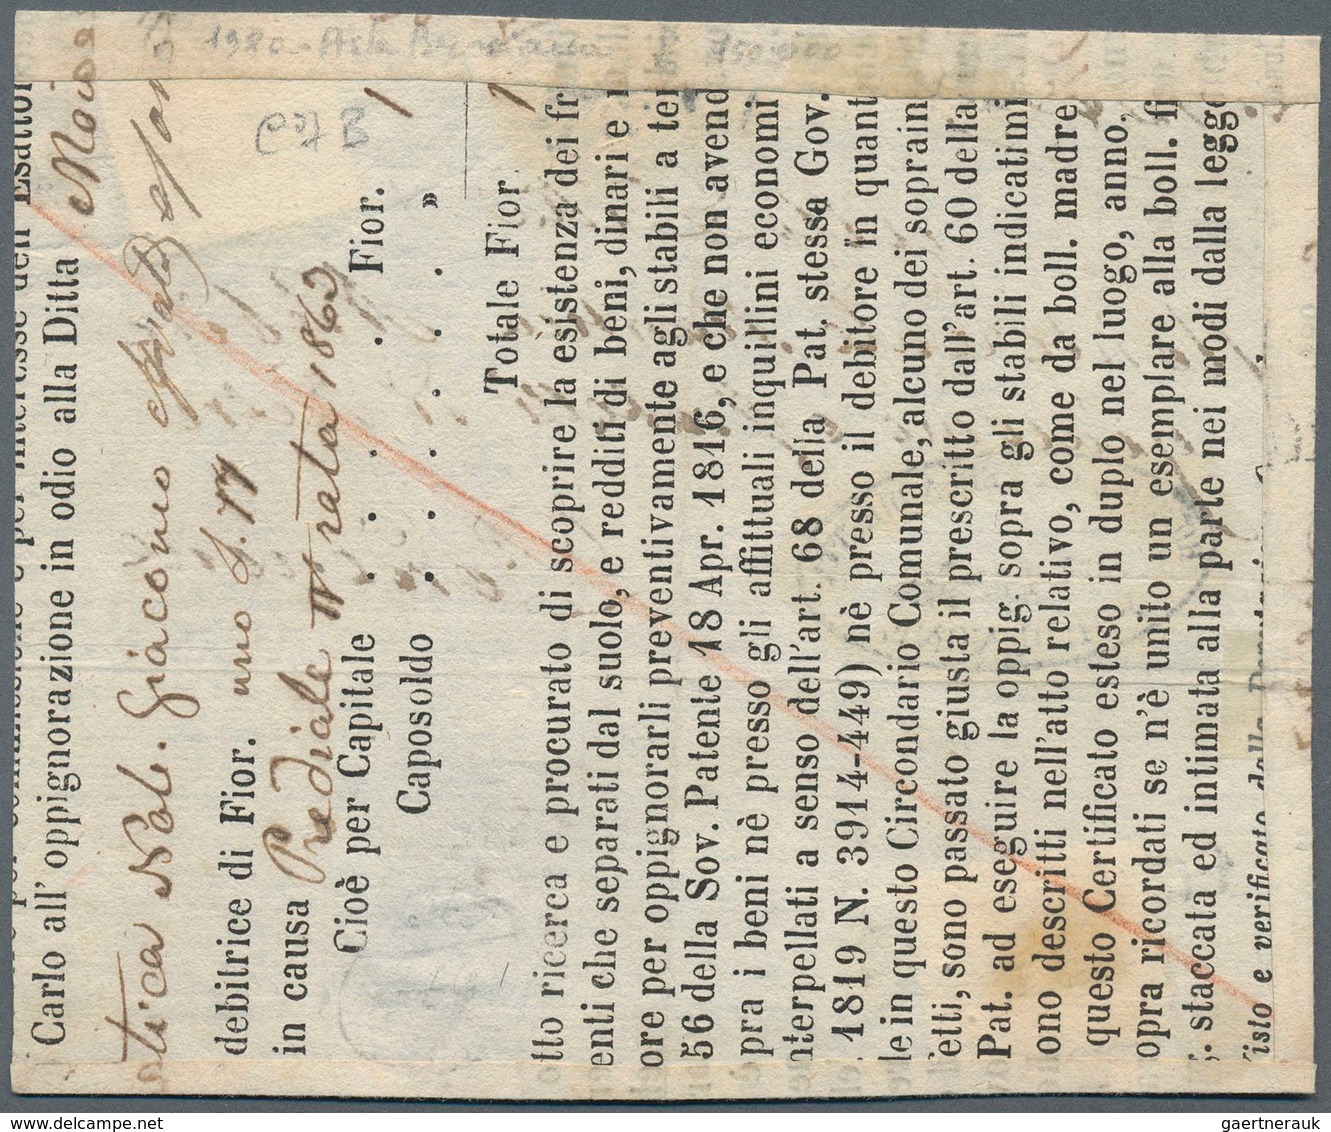 1980 - Asta 150.000
Carlo all' oppignorazione in odio alla Ditta
Nob. Giacomo
debitrice di Fior. uno S. 17
in causa Prediale IV rata 1863
Cioè per Capitale . . . . Fior. 1
Caposoldo . . . . . . . »
Totale Fior. 1
otto ricerca e procurato di scoprire la esistenza dei fr
enti che separati dal suolo, e redditi di beni, dinari e
ore per oppignorarli preventivamente agli stabili a ter
56 della Sov. Patente 18 Apr. 1816, e che non avend
pra i beni nè presso gli affittuali inquillini economi
nterpellati a senso dell'art. 68 della Pat. stessa Gov.
1819 N. 3914-449) nè presso il debitore in quant
le in questo Circondario Comunale, alcuno dei soprain
etti, sono passato giusta il prescritto dall'art. 60 della
Pat. ad eseguire la oppig. sopra gli stabili indicatimi
ono descritti nell'atto relativo, come da boll. madre
questo Certificato esteso in duplo nel luogo, anno,
opra ricordati se n'è unito un esemplare alla boll. fi
. staccata ed intimata alla parte nei modi dalla legge
isto e verificato dalla
gaertnerauk @ delcampe.net